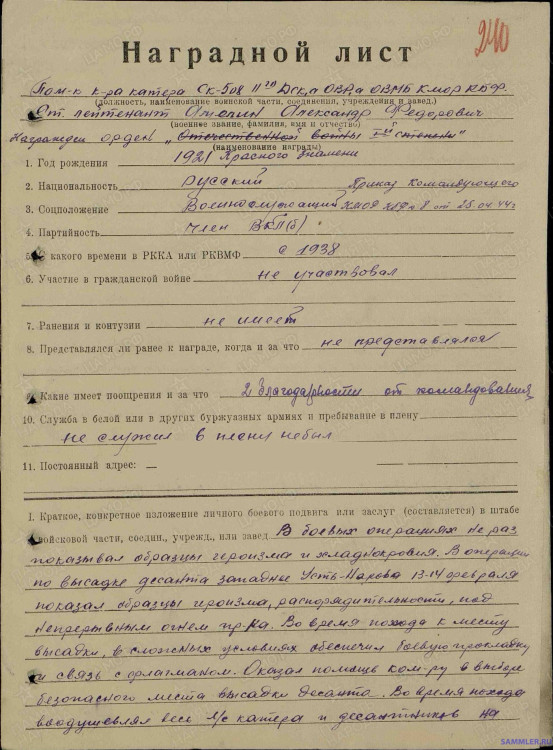 240
Наградной лист
Пом-к к-ра катера СК-508 II го Дск,а ОВРа ОВМБ КМОР КБФ
(должность, наименование воинской части, соединения, учреждения и завед.)
Ст. лейтенант Александр Федорович
(военное звание, фамилия, имя и отчество)
Награжден орден „Отечественной войны I-й степени"
(наименование награды)
Красного знамени
1. Год рождения 1921
2. Национальность Русский Приказ Командующего
3. Соцположение Военнослужащий КМОР КБФ № 8 от 25.04.44г
4. Партийность Член ВКП(б)
5. С какого времени в РККА или РКВМФ с 1938
6. Участие в гражданской войне не участвовал
7. Ранения и контузии не имеет
8. Представлялся ли ранее к награде, когда и за что не представлялся
9. Какие имеет поощрения и за что 2 благодарности от командования
10. Служба в белой или в других буржуазных армиях и пребывание в плену
не служил в плену небыл
11. Постоянный адрес: —
I. Краткое, конкретное изложение личного боевого подвига или заслуг (составляется) в штабе
войсковой части, соедин., учрежд., или завед. В боевых операциях не раз
показывал образцы героизма и хладнокровия. В операции
по высадке десанта западнее Усть-Нарова 13-14 февраля
показал образцы героизма, распорядительности, под
непрерывным огнем пр-ка. Во время похода к месту
высадки, в сложных условиях обеспечил боевую прокладку
и связь с флагманом. Оказал помощь ком-ру в выборе
безопасного места высадки десанта. Во время похода
воодушевлял весь л/с катера и десантников на
SAMMLER.RU